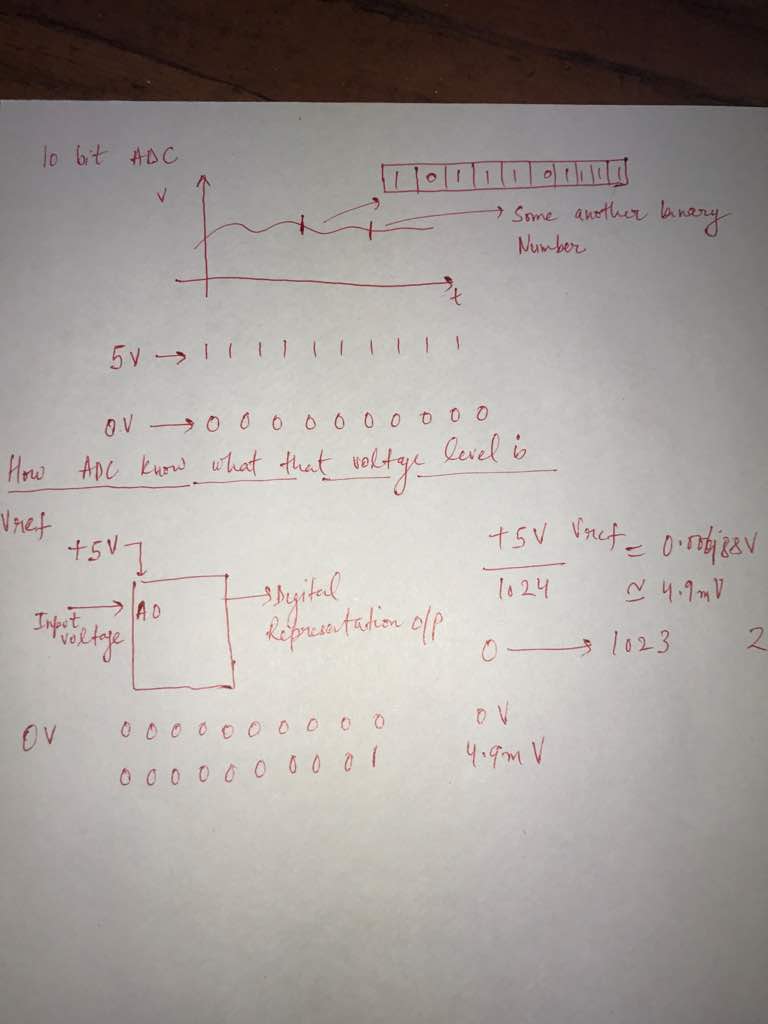 10 bit ADC
1 0 1 1 1 1 0 1 1 1 1
V
Some another binary
Number
t
5V → 1 1 1 1 1 1 1 1 1 1
0V → 0 0 0 0 0 0 0 0 0 0
How ADC know what that voltage level is
Vref
+5V
+5V Vref
1024
≃ 4.9mV
Input
voltage
A0
Digital
Representation O/P
0 → 1023 2
0V 0 0 0 0 0 0 0 0 0 0 0V
0 0 0 0 0 0 0 0 0 1 4.9mV